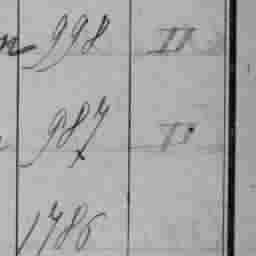 998 II
987 II
1786